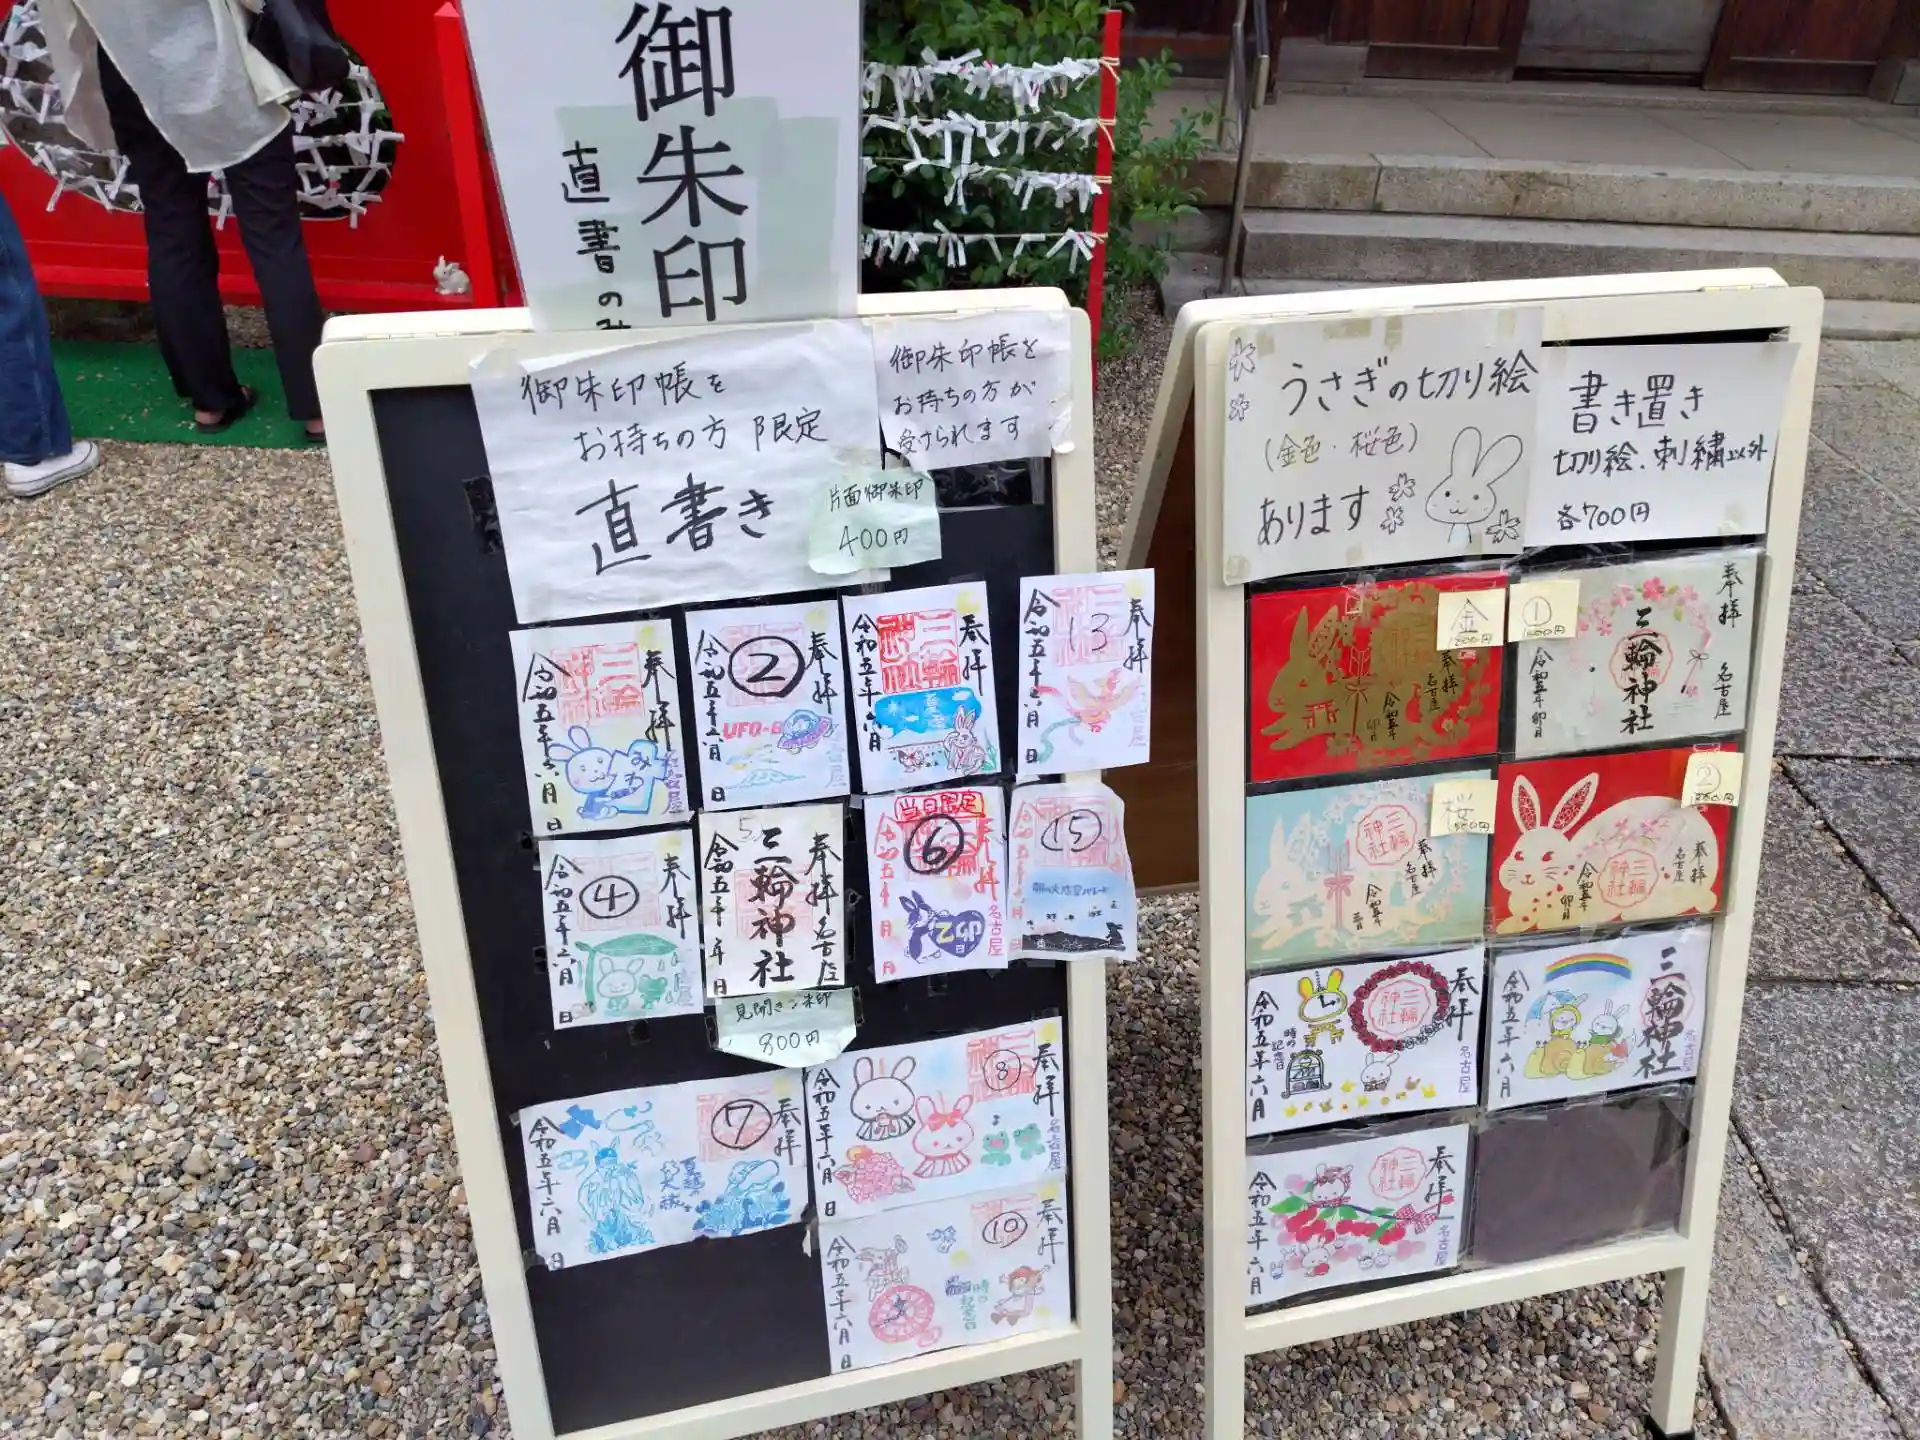 御朱印
直書のみ
御朱印帳を
お持ちの方 限定
直書き
御朱印帳を
お持ちの方が
受けられます
片面御朱印
400円
奉拝
三輪神社
令和五年六月 日
みわ
名古屋
奉拝
②
令和五年六月 日
UFO
名古屋
奉拝
三輪神社
令和五年六月
夏雲
奉拝
13
令和五年六月 日
名古屋
奉拝
④
令和五年六月 日
名古屋
5
奉拝
三輪神社
名古屋
令和五年 月 日
当日限定
⑥
令和五年 月 日
名古屋
⑮
見開き御朱印
800円
奉拝
⑦
令和五年六月 日
奉拝
⑧
令和五年六月 日
名古屋
奉拝
⑩
時の記念日
令和五年六月 日
うさぎの切り絵
(金色・桜色)
あります
書き置き
切り絵・刺繍以外
各700円
金
奉拝
名古屋
①
奉拝
三輪神社
名古屋
令和五年卯月
桜
三輪神社
奉拝
名古屋
②
三輪神社
奉拝
名古屋
令和五年卯月
奉拝
三輪神社
時の記念日
名古屋
令和五年六月
三輪神社
名古屋
令和五年六月
奉拝
三輪神社
名古屋
令和五年六月